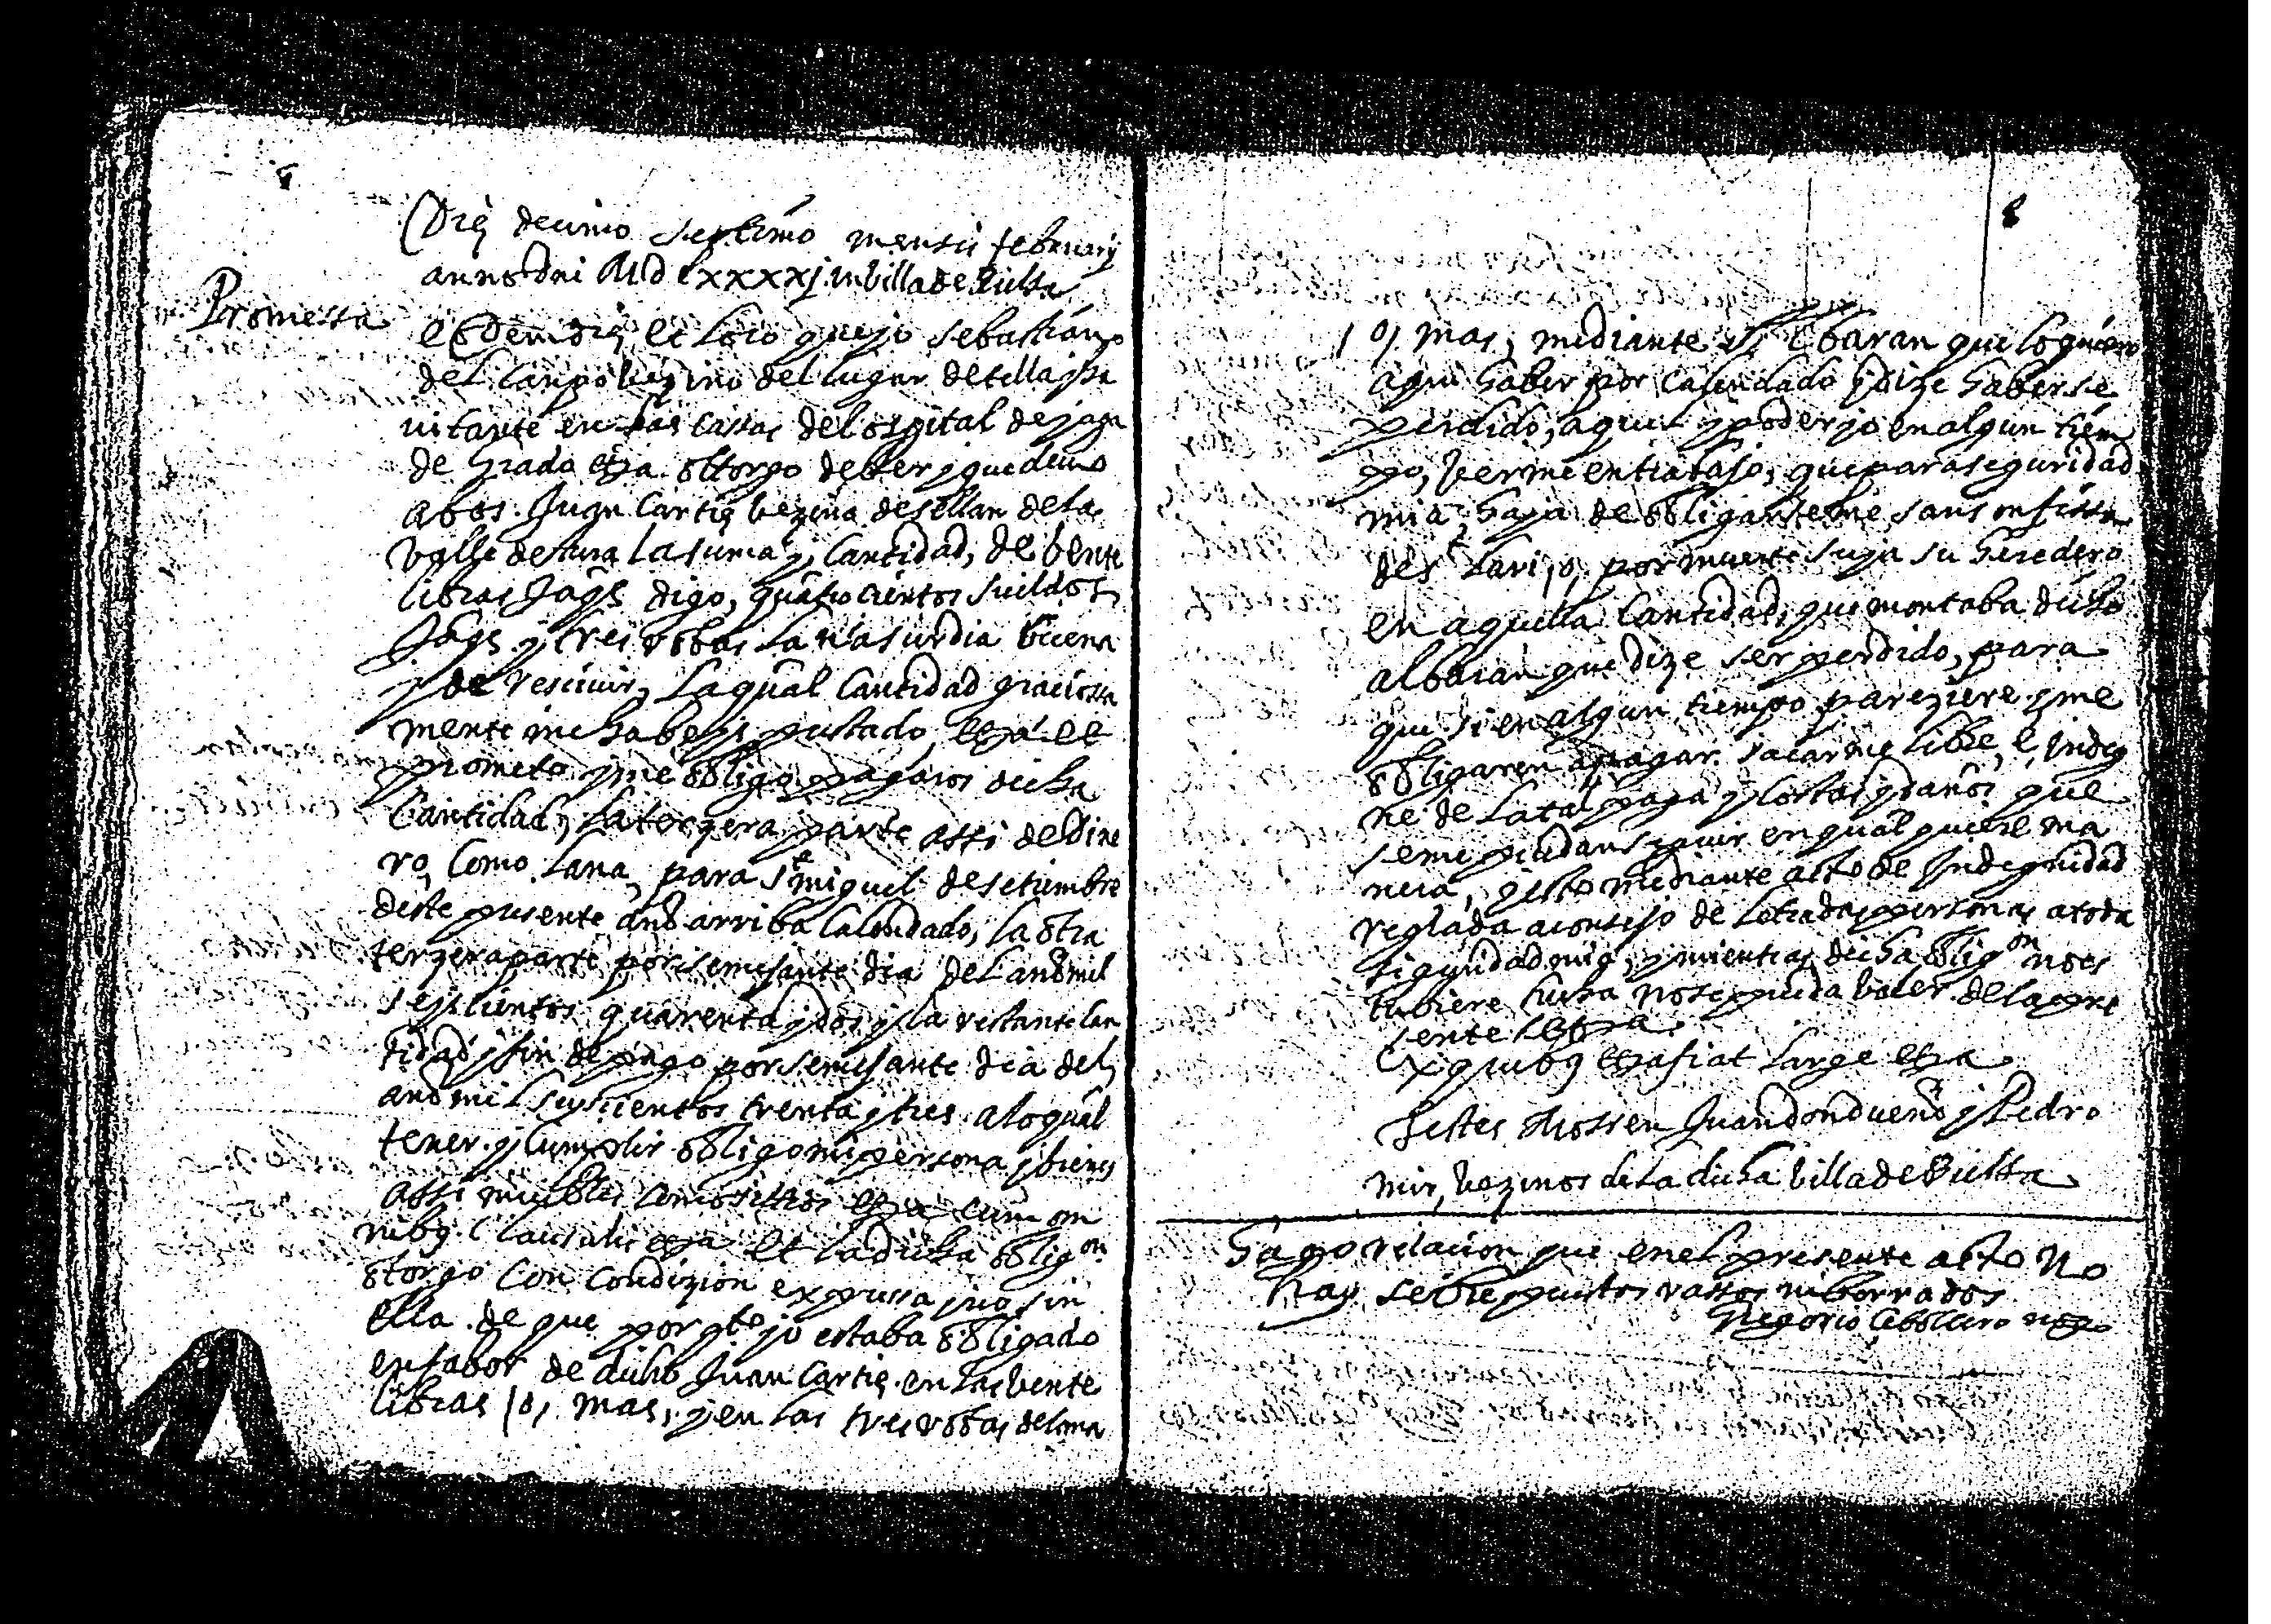 Die decimo septimo mensis februarij
anno dni M.D.C.xxxxj. in villa de Bielssa
Promessa
eodem die et loco que yo Sebastian
del Campo vezino del lugar de tella y ha
uitante en las cassas del ospital de
de grado etza ottorgo deber y que deuo
a bos Juan Cartie vezino de sellan de la
valle de aura la suma y cantidad, de vente
libras Jaqs digo, quatrocientos sueldos
Jaqs y tres robas lana surdia buena
y de resciuir, la qual cantidad graciossa
mente me habeys prestado, etza et
prometo y me obligo pagaros dicha
Cantidad, la terzera parte assi de dine
ro, como lana, para St miguel de setiembre
deste presente año arriba Calendado, la otra
terzera parte por semejante dia del año mil
seyscientos quarenta y dos y la restante can
tidad y fin de pago por semejante dia del
año mil seyscientos trenta y tres a lo qual
tener y cumplir obligo mi persona y bienes
assi muebles como sitios etza cum om
nibg clausulis etza et la dicha obligon
otorgo con condizion expressa y no sin
ella de que por qto yo estaba obligado
en fabor de dicho Juan Cartie en las vente
libras /o, mas, y en las tres robas de lana
8
/ o/ mas, mediante albaran que lo quiero
aqui haber por calendado y dize haberse
perdido, aquel y poder yo en algun tiem
po, verme en trabajo, que para seguridad
mia, haya de obligarseme sans
del Cari, o, por muerte suya su heredero
en aquella Cantidad, que montaba dicho
albaran que dize ser perdido, para
que si en algun tiempo pareziere y me
obligaren a pagar sacarme libre, e, indeg
ne de la tal paga y costas y daños que
se me puedan seguir en qual quiere ma
nera, y esto mediante acto de Indegnidad
reglada a consejo de letradas personas a toda
siguridad mia, y mientras dicha obligon no es
tubiere hecha no se pueda baler de la pre
sente etza
Ex quibg etza fiat large etza
Testes Mossen Juan dondueño y Pedro
mir, vezinos de la dicha villa de Bielssa
hago relacion que en el presente acto No
hay sobrepuestos rassos ni borrados
Gregorio Cebollero noro